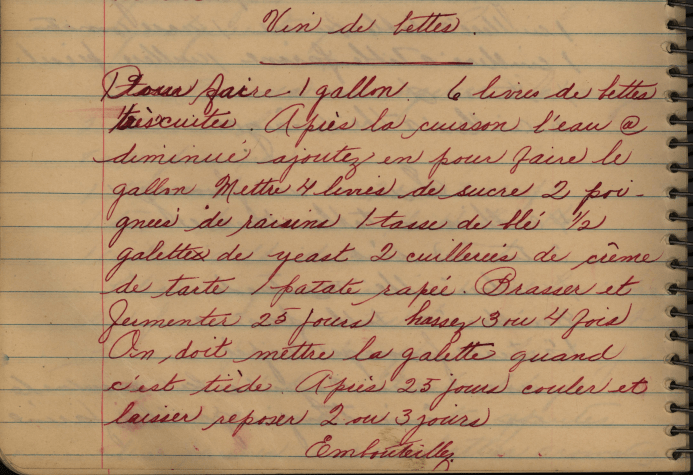 Vin de bettes.
Pour faire 1 gallon 6 livres de bettes
très cuites. Après la cuisson l'eau @
diminué ajoutez en pour faire le
gallon Mettre 4 livres de sucre 2 poi-
gnées de raisins 1 tasse de blé 1/2
galette de yeast 2 cuillerées de crème
de tarte 1 patate rapée. Brasser et
fermenter 25 jours 3 ou 4 fois
On doit mettre la galette quand
c'est tiède. Après 25 jours couler et
laisser reposer 2 ou 3 jours
Embouteillez